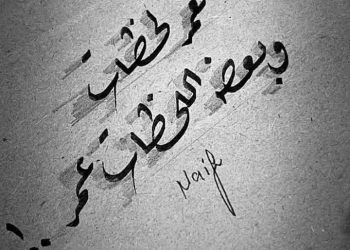 عمر لحظات
وبعض اللحظات عمر
Naif